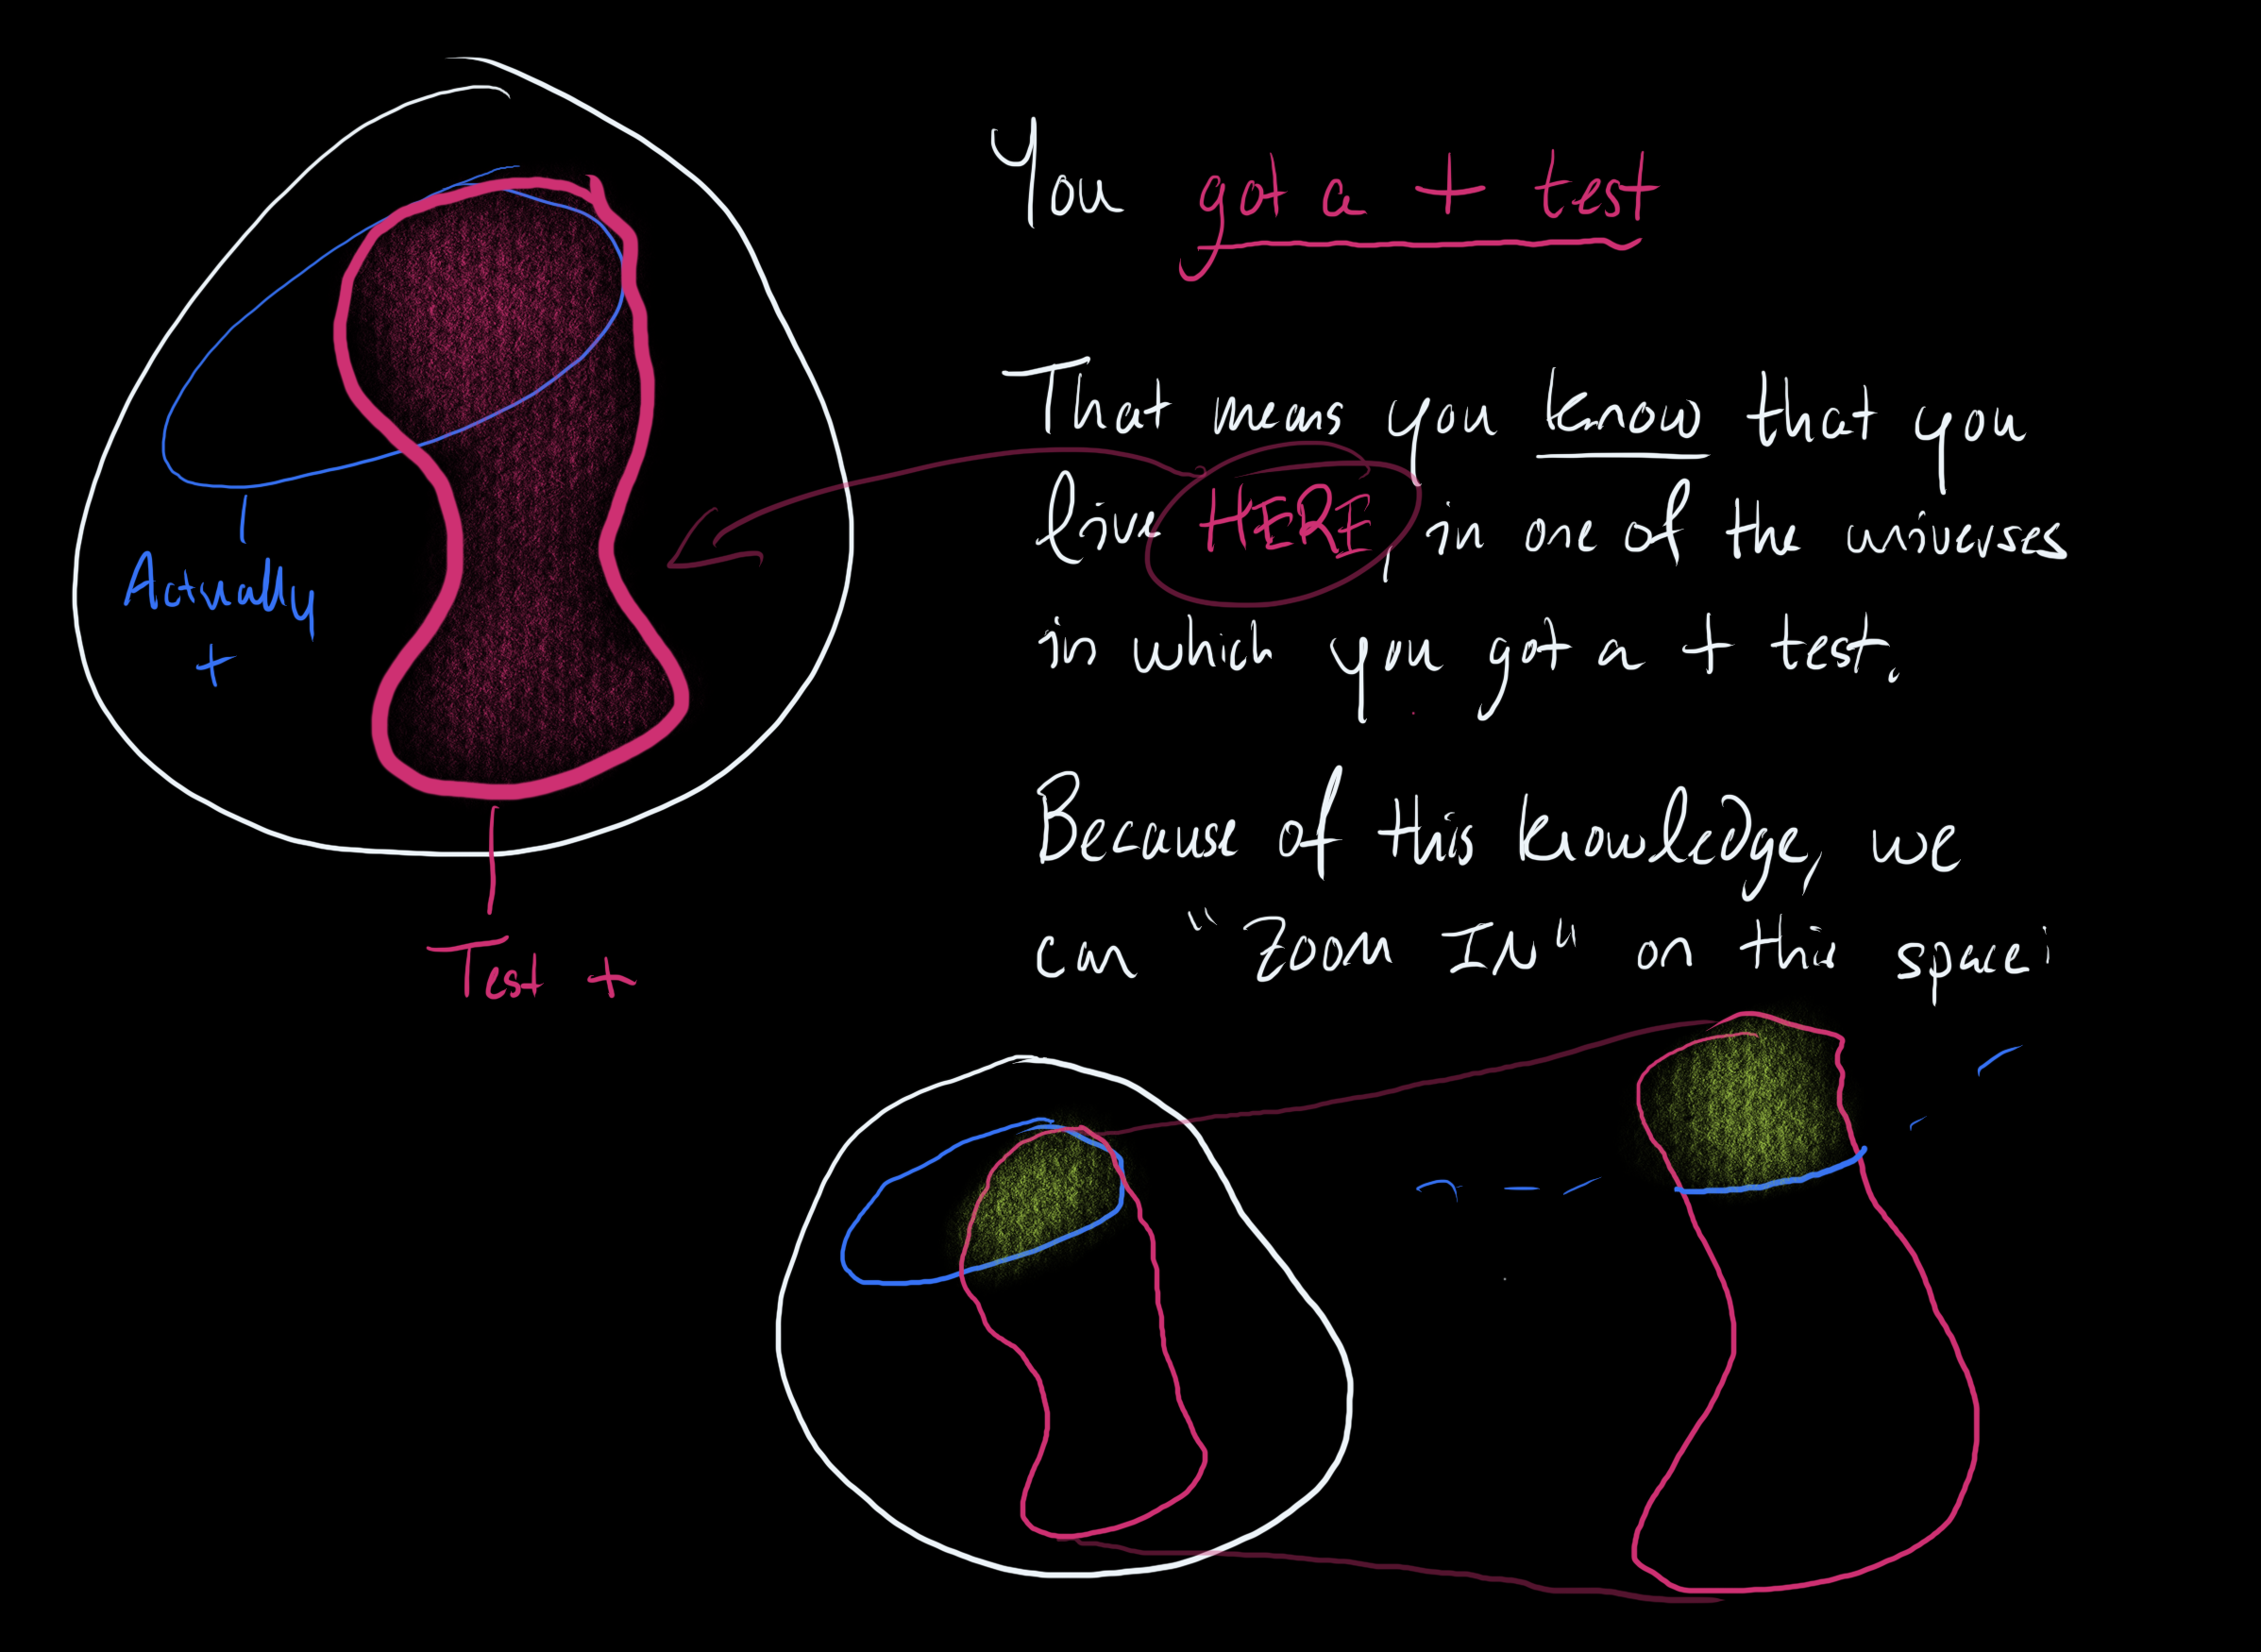 You got a + test
That means you know that you
live HERE, in one of the universes
in which you got a + test.
Because of this knowledge, we
can "ZOOM IN" on this space:
Actually
+
Test +